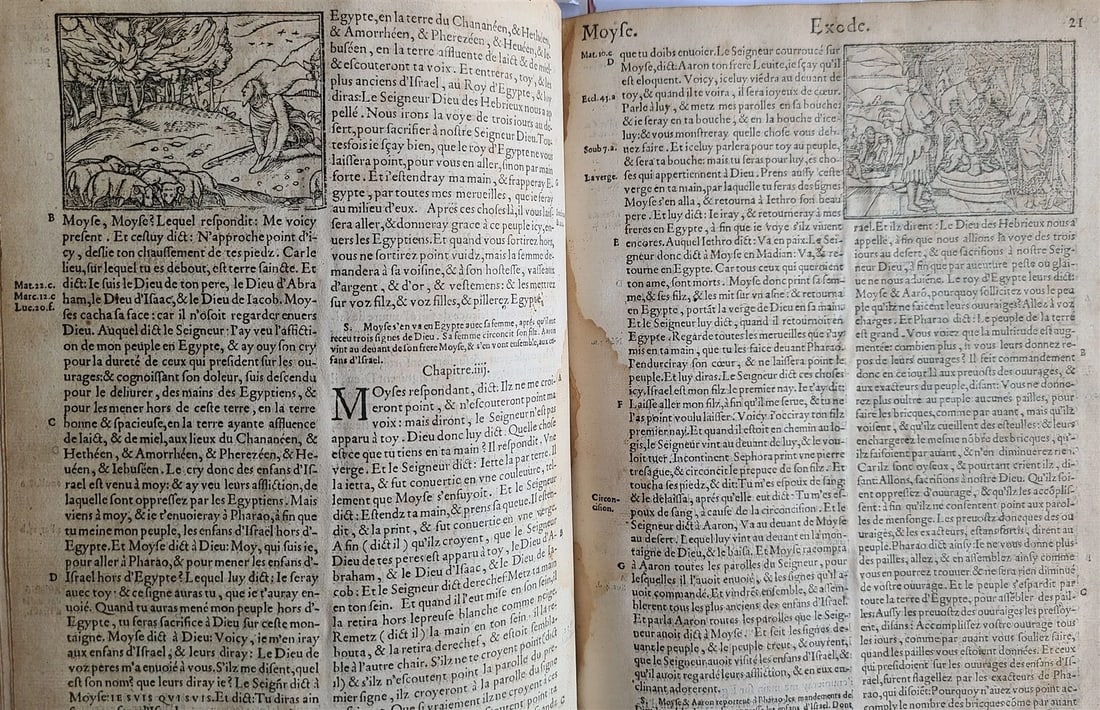 B
Moyse, Moyse? Lequel respondit: Me voicy
present. Et cestuy dict: N'approche point d'i-
cy, deslie ton chaussement de tes piedz. Car le
lieu, sur lequel tu es debout, est terre saincte. Et
Mat.22.c.
Marc.12.c
Luc.20.f.
dict: Ie suis le Dieu de ton pere, le Dieu d'Abra
ham, le Dieu d'Isaac, & le Dieu de Iacob. Moy-
ses cacha sa face: car il n'osoit regarder enuers
Dieu. Auquel dict le Seigneur: I'ay veu l'afflicti-
on de mon peuple en Egypte, & ay ouy son cry
pour la dureté de ceux qui president sur les ou-
urages: & cognoissant son doleur, suis descendu
pour le deliurer, des mains des Egyptiens, &
pour les mener hors de ceste terre, en la terre
C
bonne & spacieuse, en la terre ayante affluence
de laict, & de miel, aux lieux du Chananéen, &
Hethéen, & Amorrhéen, & Pherezéen, & He-
uéen, & Iebuséen. Le cry donc des enfans d'Is-
rael est venu à moy: & ay veu leurs affliction, de
laquelle sont oppressez par les Egyptiens. Mais
viens à moy, & ie t'enuoieray à Pharao, à fin que
tu meine mon peuple, les enfans d'Israel hors d'-
Egypte. Et Moyse dict à Dieu: Moy, qui suis ie,
pour aller à Pharao, & pour mener les enfans d'-
D
Israel hors d'Egypte? Lequel luy dict: Ie seray
auec toy: & ce signe auras tu, que ie t'auray en-
uoié. Quand tu auras mené mon peuple hors d'-
Egypte, tu feras sacrifice à Dieu sur ceste mon-
taigne. Moyse dict à Dieu: Voicy, ie m'en iray
aux enfans d'Israel, & leurs diray: Le Dieu de
voz peres m'a enuoié à vous. S'ilz me disent, quel
est son nom? que leurs diray ie? Le Seignr dict à
Moyse: IE SVIS QVI SVIS. Et dict: Tu diras ain
Egypte, en la terre du Chananéen, & Hethéen,
& Amorrhéen, & Pherezéen, & Heuéen, & Ie-
buséen, en la terre affluente de laict & de miel
& escouteront ta voix. Et entreras, toy, & les
plus anciens d'Israel, au Roy d'Egypte, & luy
diras: Le Seigneur Dieu des Hebrieux nous a ap
pellé. Nous irons la voye de trois iours au de-
sert, pour sacrifier à nostre Seigneur Dieu. Tou-
tesfois ie sçay bien, que le roy d'Egypte ne vous
laissera point, pour vous en aller, sinon par main
forte. Et i'estendray ma main, & frapperay E-
gypte, par toutes mes merueilles, que ie feray
au milieu d'eux. Apres ces choses là, il vous lais-
sera aller, & donneray grace à ce peuple icy, en-
uers les Egyptiens. Et quand vous sortirez hors,
vous ne sortirez point vuidz, mais la femme de-
mandera à sa voisine, & à son hostesse, vasseaux
d'argent, & d'or, & vestemens: & les mettrez
sur voz filz, & voz filles, & pillerez Egypte,
S. Moyse s'en va en Egypte auec sa femme, après qu'il eut
receu trois signes du Seigneur. Sa femme circoncit son filz. Aaron
vint au deuant de son frere Moyse, & s'en vont ensemble, aux en-
fans d'Israel.
Chapitre.iiij.
MOyses respondant, dict. Ilz ne me croi-
eront point, & n'escouteront point ma
voix: mais diront, le Seigneur n'est pas
apparu à toy. Dieu donc luy dict: Quelle chose
est ce que tu tiens en ta main? Il respondit. Vne
verge. Et le Seigneur dict: Iette la par terre. Il
la ietta, & fut conuertie en vne couleure, tel-
lement que Moyse s'ensuyoit. Et le Seigneur
dict: Estendz ta main, & prens sa queue. Il esten-
dit, & la print, & fut conuertie en vne verge.
A fin (dict il) qu'ilz croyent, que le Seigneur
Dieu de tes peres est apparu à toy, le Dieu d'A-
braham, & le Dieu d'Isaac, & le Dieu de Ia-
cob: Et le Seigneur dict derechef: Metz ta main
en ton sein. Et quand il l'eut mise en son sein, il
la retira hors lepreuse blanche comme neige.
Remetz (dict il) la main en ton sein. Il la re-
bouta, & la retira derechef, & estoit sembla-
ble à l'autre chair. S'ilz ne te croyent point (dict
il) & s'ilz n'escoutent point la parolle du pre-
mier signe, ilz croyeront à la parole du signe
Moyse.
Exode.
21
Mat.10.c.
D
que tu doibs enuoier. Le Seigneur courroucé sur
Moyse, dict: Aaron ton frere Leuite, ie sçay qu'il
est eloquent. Voicy, iceluy viēdra au deuant de
Eccl.45.a
toy, & quand il te voira, il sera ioyeux de cœur.
Parle à luy, & metz mes parolles en sa bouche:
& ie seray en ta bouche, & en la bouche d'ice-
luy: & vous monstreray quelle chose vous deb-
Soub 7.a.
uez faire. Et iceluy parlera pour toy au peuple,
& sera ta bouche: mais tu seras pour luy, es cho-
La verge.
ses qui appertiennent à Dieu. Prens aussy ceste
verge en ta main, par laquelle tu feras des signes
Moyse s'en alla, & retourna à Iethro son beau
pere. Et luy dict: Ie iray, & retourneray à mes
freres en Egypte, à fin que ie voye s'ilz viuent
E
encores. Auquel Iethro dict: Va en paix. Le Sei-
gneur donc dict à Moyse en Madian: Va, & re-
tourne en Egypte. Car tous ceux qui queroient
ton ame, sont morts. Moyse donc print sa fem-
me, & ses filz, & les mit sur vn asne: & retourna
en Egypte, portāt la verge de Dieu en sa main.
Et le Seigneur luy dict, quand il retournoit en
Egypte. Regarde toutes les merueilles que i'ay
mis en ta main, que tu les faice deuant Pharao.
I'endurciray son cœur, & ne laissera point le
peuple. Et luy diras. Le Seigneur dict ces choses
icy. Israel est mon filz le premier nay. Ie t'ay dit:
F
Laisse aller mon filz, à fin qu'il me serue, & tu ne
l'as point voulu laisser. Voicy i'occiray ton filz
premier nay. Et quand il estoit en chemin au lo-
gis, le Seigneur vint au deuant de luy, & le vou-
loit tuer. Incontinent Sephora print vne pierre
tresague, & circoncit le prepuce de son filz. Et
toucha ses piedz, & dit: Tu m'es espoux de sang:
Circon-
cision.
& le delaissa, après qu'elle eut dict: Tu m'es es-
poux de sang, à cause de la circoncision. Et le
Seigneur dict à Aaron, Va au deuant de Moyse
au desert. Lequel luy vint au deuant en la mon-
taigne de Dieu, & le baisa. Et Moyse racompta
G
à Aaron toutes les parolles du Seigneur, pour
lesquelles il l'auoit enuoié, & les signes qu'il a-
uoit commandé. Et vindrēt ensemble, & assem-
blerent tous les plus anciens des enfans d'Israel.
Et parla Aaron toutes les paroles que le Seig-
neur auoit dict à Moyse. Et feit les signes de-
uant le peuple, & le peuple creut, & ouyrent,
que le Seigneur auoit visité les enfans d'Israel, &
qu'il auoit regardé leurs affliction, & en eux en-
clinant adorerent.
S. Moyse & Aaron reportent à Pharao les mandemens de
rael. Et ilz dirent: Le Dieu des Hebrieux nous a
appellé, à fin que nous allions la voye des trois
iours au desert, & que sacrifions à nostre Seig-
neur Dieu, à fin que par auenture peste ou glai-
ue ne nous aduiēne. Le roy d'Egypte leurs dict:
Moyse & Aarō, pourquoy sollicitez vous le peu
ple qu'ilz ne facent leurs ouurages? Allez à voz
charges. Et Pharao dict: Le peuple de la terre
est grand. Vous voiez que la multitude est aug-
mentée combien plus, si vous leurs donnez re-
pos de leurs ouurages? Il feit commandement
donc en ce iour là aux preuosts des ouurages, &
aux exacteurs du peuple, disant: Vous ne donne-
rez plus oultre au peuple aucunes pailles, pour
faire les bricques, comme par auant, mais qu'ilz
voisent, & qu'ilz cueillent des esteulles: & leurs
enchargerez le mesme nōbre des bricques, qu'-
ilz faisoient par auant, & n'en diminuerez rien.
Car ilz sont oyseux, & pourtant crient ilz, di-
sant: Allons, sacrifions à nostre Dieu. Qu'ilz soi-
ent oppressez d'ouurage, & qu'ilz les accōplis-
sent: à fin qu'ilz ne consentent point aux parol-
les de mensonge. Les preuostz doncques des ou
uraiges, & les exacteurs, estans sortis, dirent au
peuple. Pharao dict ainsy: Ie ne vous donne plus
des pailles, allez, & en assemblez ainsy comme
vous en pourrez trouuer, & ne sera rien diminué
de vostre ouurage. Et le peuple s'espardit par
toute la terre d'Egypte, pour assēbler des pail-
les: Aussy les preuostz des ouuraiges les pressoy-
ent, disans: Accomplissez vostre ouurage tous
les iours, comme par auant vous souliez faire,
quand les pailles vous estoient données. Et ceux
qui presidoient sur les ouurages des enfans d'Is-
rael, furent flagellez par les exacteurs de Pha-
rao, qui disoiēt: Pourquoy n'auez vous point ac-